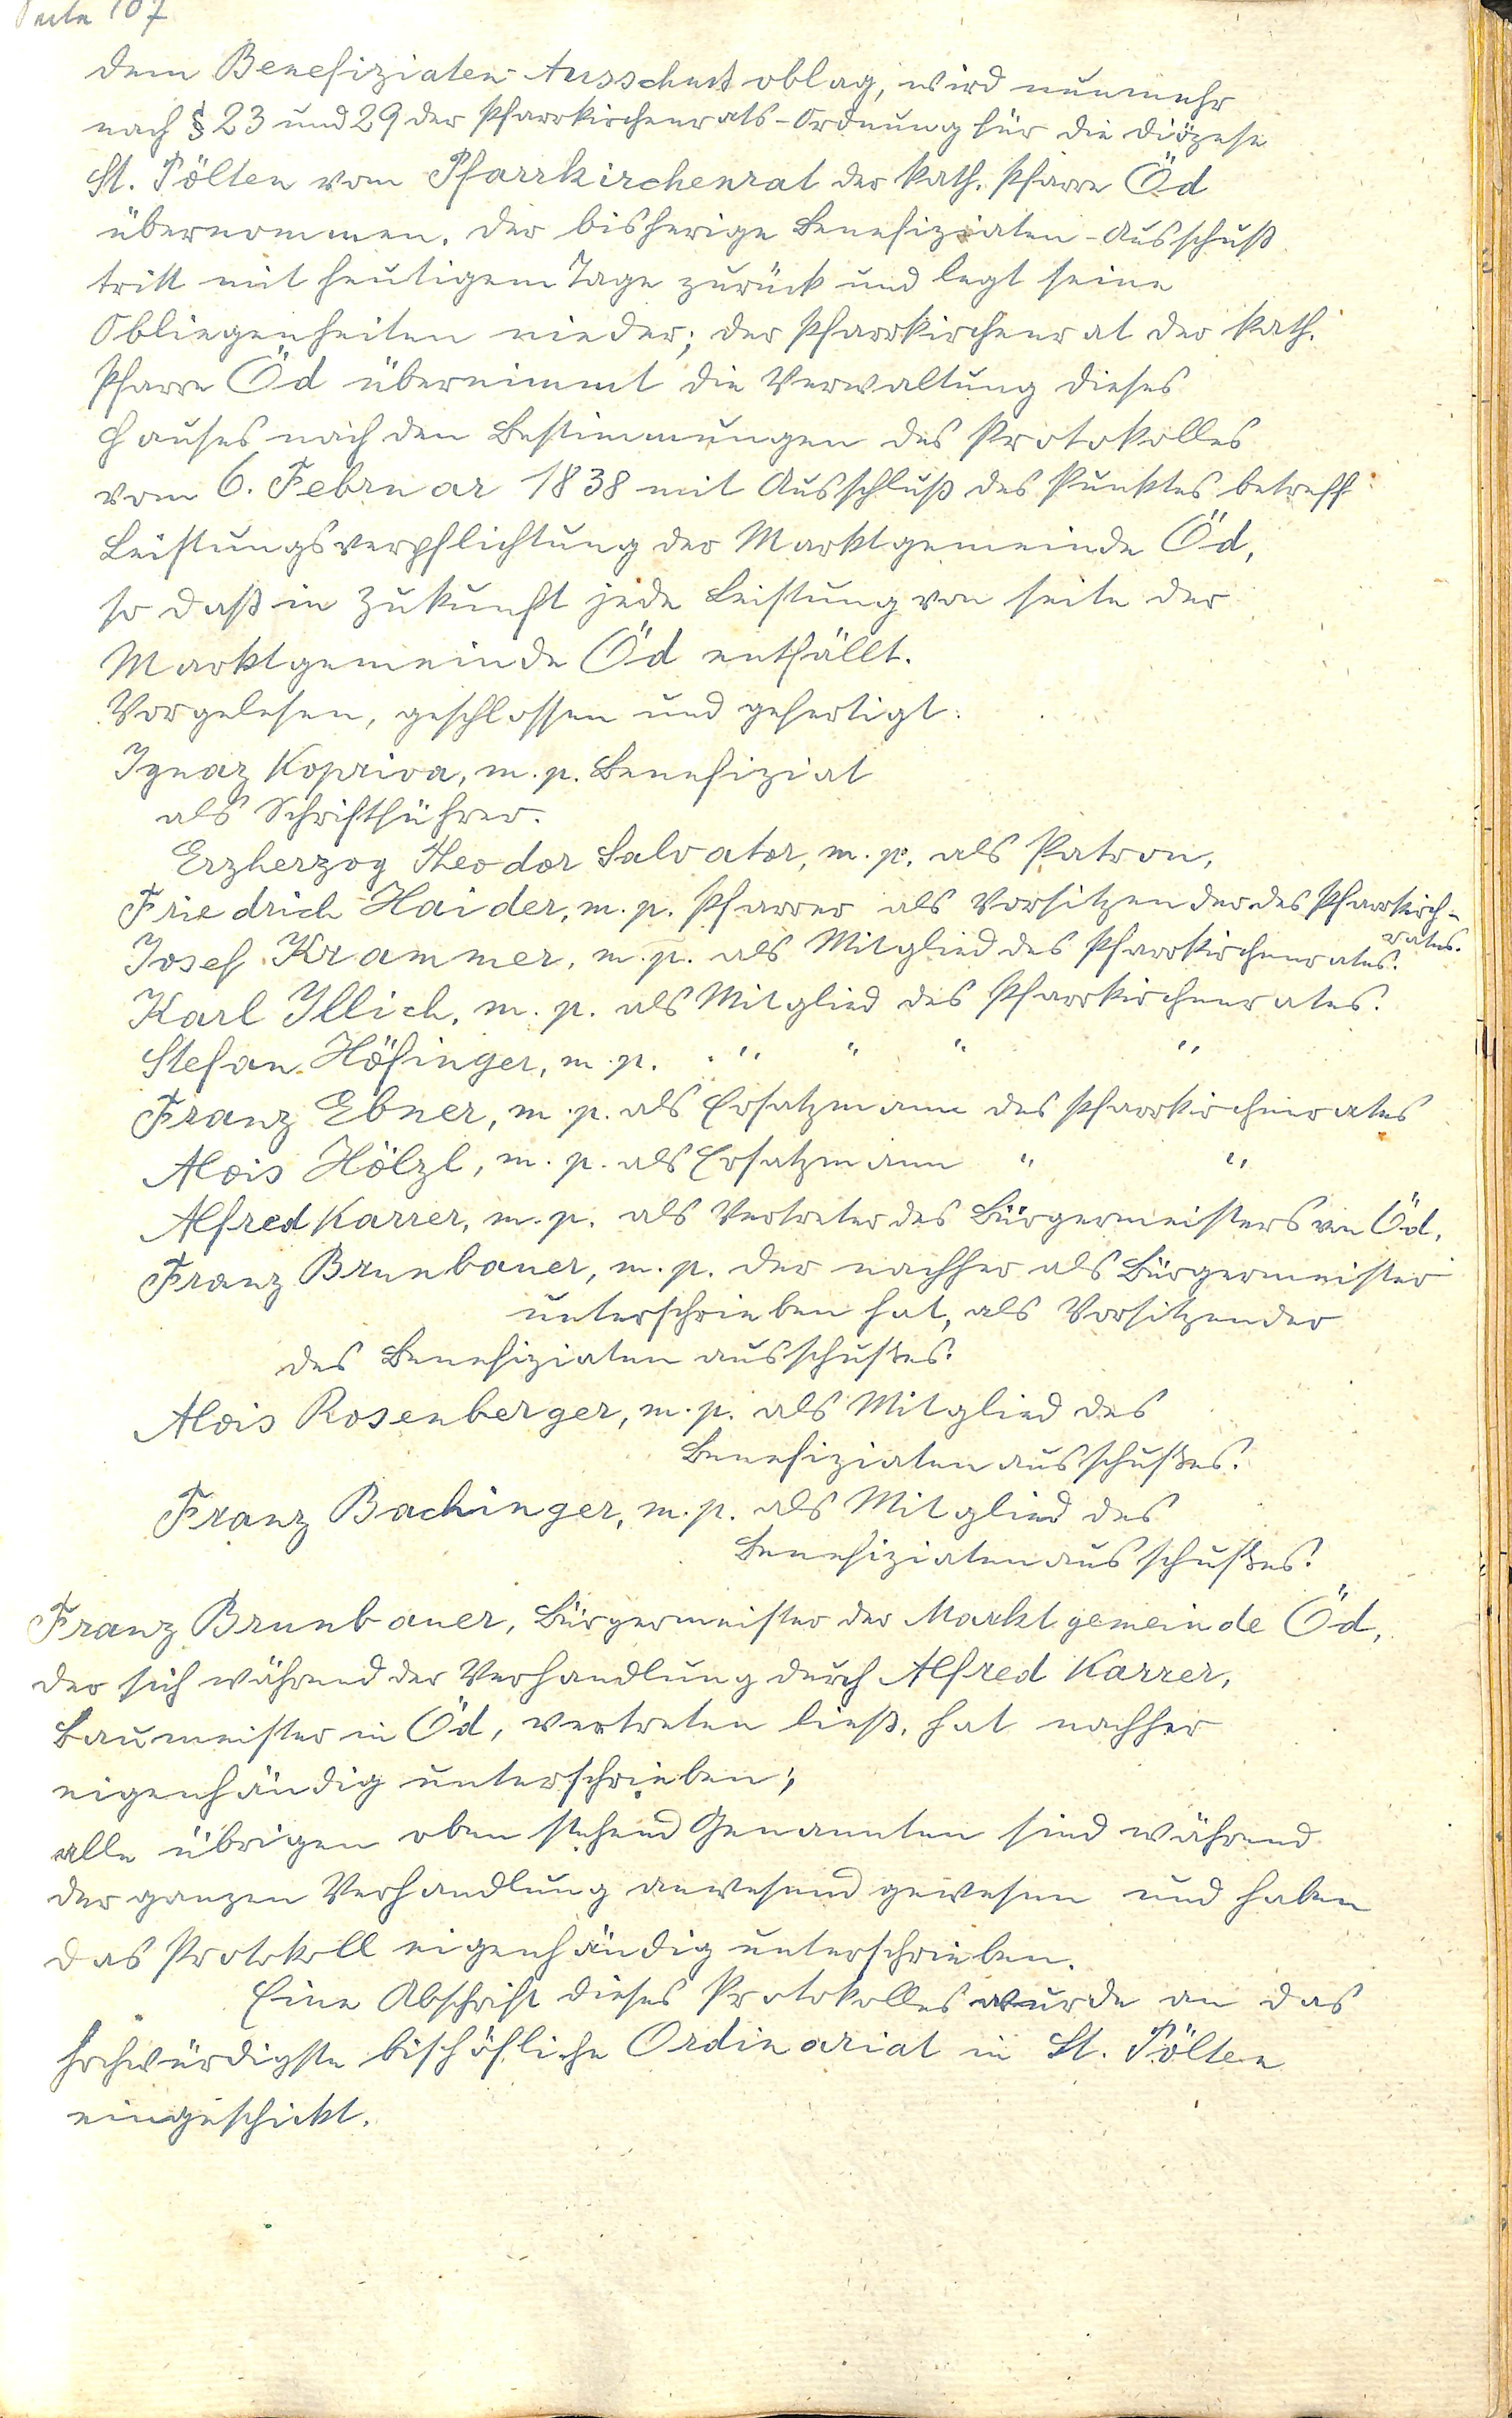 Seite 107
dem Benefiziaten-Ausschuß oblag, wird nunmehr
nach § 23 und 29 der Pfarrkirchenrats-Ordnung für die Diözese
St. Pölten vom Pfarrkirchenrat der kath. Pfarre Öd
übernommen. Der bisherige Benefiziaten-Ausschuß
tritt mit heutigem Tage zurück und legt seine
Obliegenheiten nieder; der Pfarrkirchenrat der kath.
Pfarre Öd übernimmt die Verwaltung dieses
Hauses nach den Bestimmungen des Protokolles
vom 6. Februar 1838 mit Ausschluß des Punktes betreff
Leistungsverpflichtung der Marktgemeinde Öd,
so daß in Zukunft jede Leistung von seite der
Marktgemeinde Öd entfällt.
Vorgelesen, geschlossen und gefertigt:
Ignaz Kopriva, m. p. Benefiziat
als Schriftführer.
Erzherzog Theodor Salvator, m. p. als Patron,
Friedrich Haider, m. p. Pfarrer als Vorsitzender des Pfarrkirch-
rates.
Josef Krammer, m. p. als Mitglied des Pfarrkirchenrates.
Karl Illich, m. p. als Mitglied des Pfarrkirchenrates.
Stefan Höfinger, m. p. " " " "
Franz Ebner, m. p. als Ersatzmann des Pfarrkirchenrates
Alois Hölzl, m. p. als Ersatzmann " "
Alfred Karrer, m. p. als Vertreter des Bürgermeisters von Öd,
Franz Brunbauer, m. p. der nachher als Bürgermeister
unterschrieben hat, als Vorsitzender
des Benefiziatenausschußes.
Alois Rosenberger, m. p. als Mitglied des
Benefiziatenausschußes.
Franz Bachinger, m. p. als Mitglied des
Benefiziatenausschußes.
Franz Brunbauer, Bürgermeister der Marktgemeinde Öd,
der sich während der Verhandlung durch Alfred Karrer,
Baumeister in Öd, vertreten ließ, hat nachher
eigenhändig unterschrieben;
alle übrigen oben stehend Genannten sind während
der ganzen Verhandlung anwesend gewesen und haben
das Protokoll eigenhändig unterschrieben.
Eine Abschrift dieses Protokolles wurde an das
hochwürdigste bischöfliche Ordinariat in St. Pölten
eingeschickt.